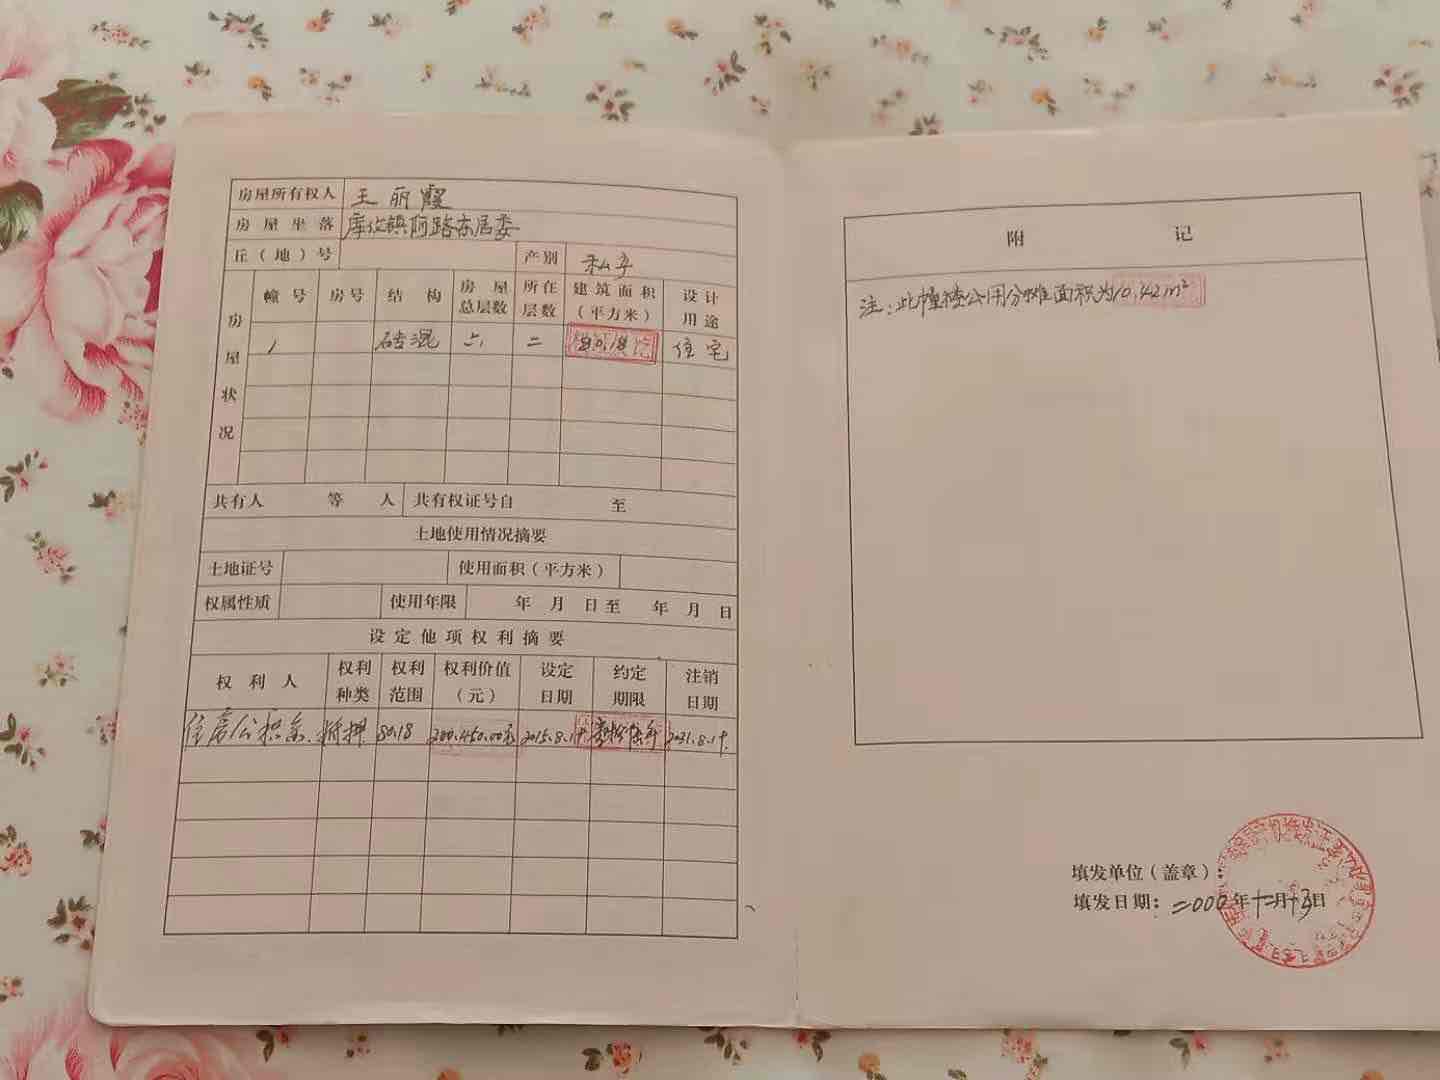 房屋所有权人 王丽霞
房屋坐落 库
丘（地）号 产别 私产
房屋状况
幢号 房号 结构 房屋总层数 所在层数 建筑面积（平方米） 设计用途
1 砖混 六 二 80.18 住宅
共有人 等 人 共有权证号自 至
土地使用情况摘要
土地证号 使用面积（平方米）
权属性质 使用年限 年 月 日至 年 月 日
设定他项权利摘要
权利人 权利种类 权利范围 权利价值（元） 设定日期 约定期限 注销日期
住房公积金 抵押 80.18 200.450.00元 2015.8.19. 2021.8.19.
附 记
注：此幢楼公用分摊面积为10.42m²
填发单位（盖章）
填发日期：二000年十二月十3日